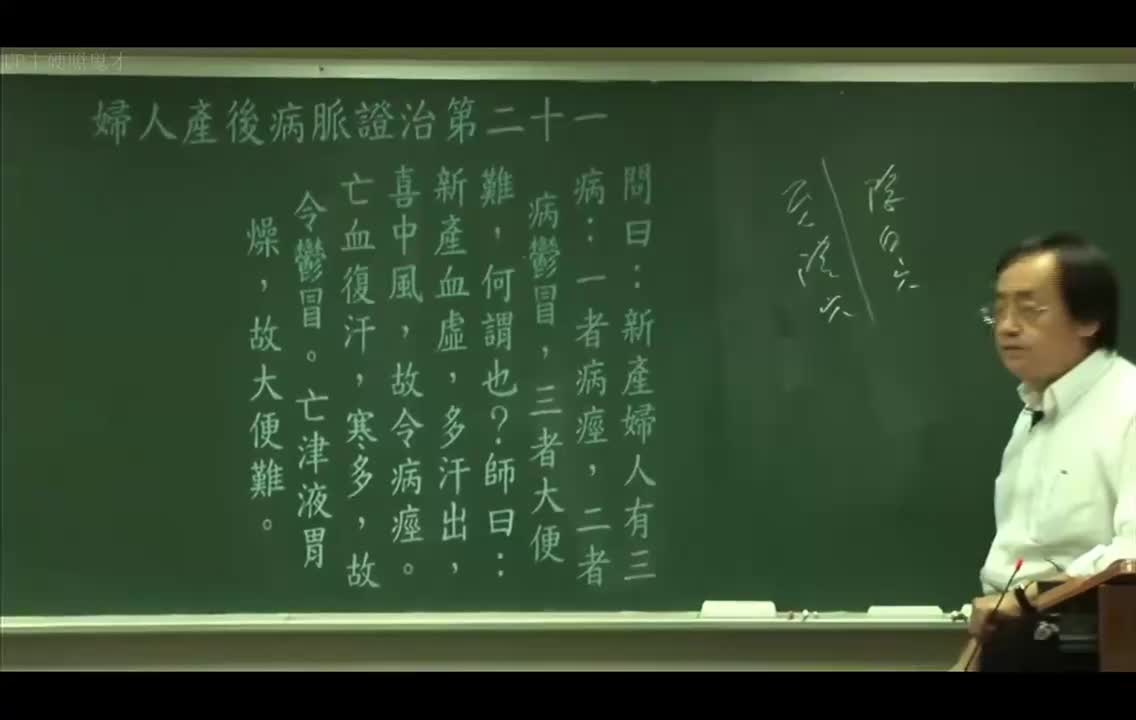 婦人產後病脈證治第二十一
問曰：新產婦人有三
病：一者病痙，二者
病鬱冒，三者大便
難，何謂也？師曰：
新產血虛，多汗出，
喜中風，故令病痙。
亡血復汗，寒多，故
令鬱冒。亡津液胃
燥，故大便難。